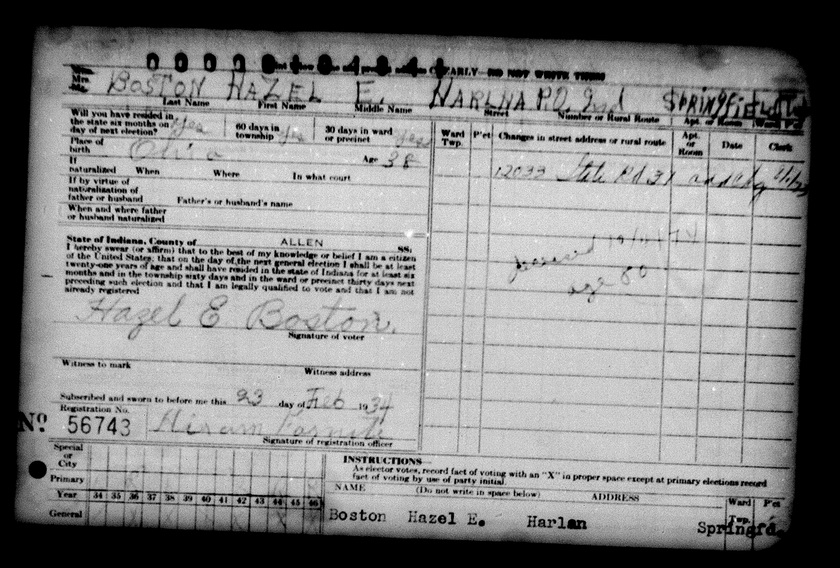 CLEARLY DO NOT WRITE THIS
Mrs. BOSTON HAZEL E. HARLAN
Last Name First Name Middle Name Street Number or Rural Route Apt. or Room Ward P'ct
Will you have resided in the state six months on day of next election? Yes 60 days in township Yes 30 days in ward or precinct Yes
Place of birth Ohio Age 38
If naturalized When Where In what court
If by virtue of naturalization of father or husband Father's or husband's name
When and where father or husband naturalized
State of Indiana, County of ALLEN ss.
I hereby swear (or affirm) that to the best of my knowledge or belief I am a citizen
of the United States; that on the day of the next general election I shall be at least
twenty-one years of age and shall have resided in the state of Indiana for at least six
months and in the township sixty days and in the ward or precinct thirty days next
preceding such election and that I am legally qualified to vote and that I am not
already registered
Hazel E Boston.
Signature of voter
Witness to mark Witness address
Subscribed and sworn to before me this 23 day of Feb 1934
Registration No.
No 56743 Hiram
Signature of registration officer
Ward Twp. P'ct Changes in street address or rural route Apt. or Room Date Clerk
12033 State Rd 37
deceased
age 80
Special or City
Primary
Year 34 35 36 37 38 39 40 41 42 43 44 45 46
General
INSTRUCTIONS
As elector votes, record fact of voting with an "X" in proper space except at primary elections record
fact of voting by use of party initial.
NAME (Do not write in space below) ADDRESS Ward Twp. P'ct
Boston Hazel E. Harlan Springfd.